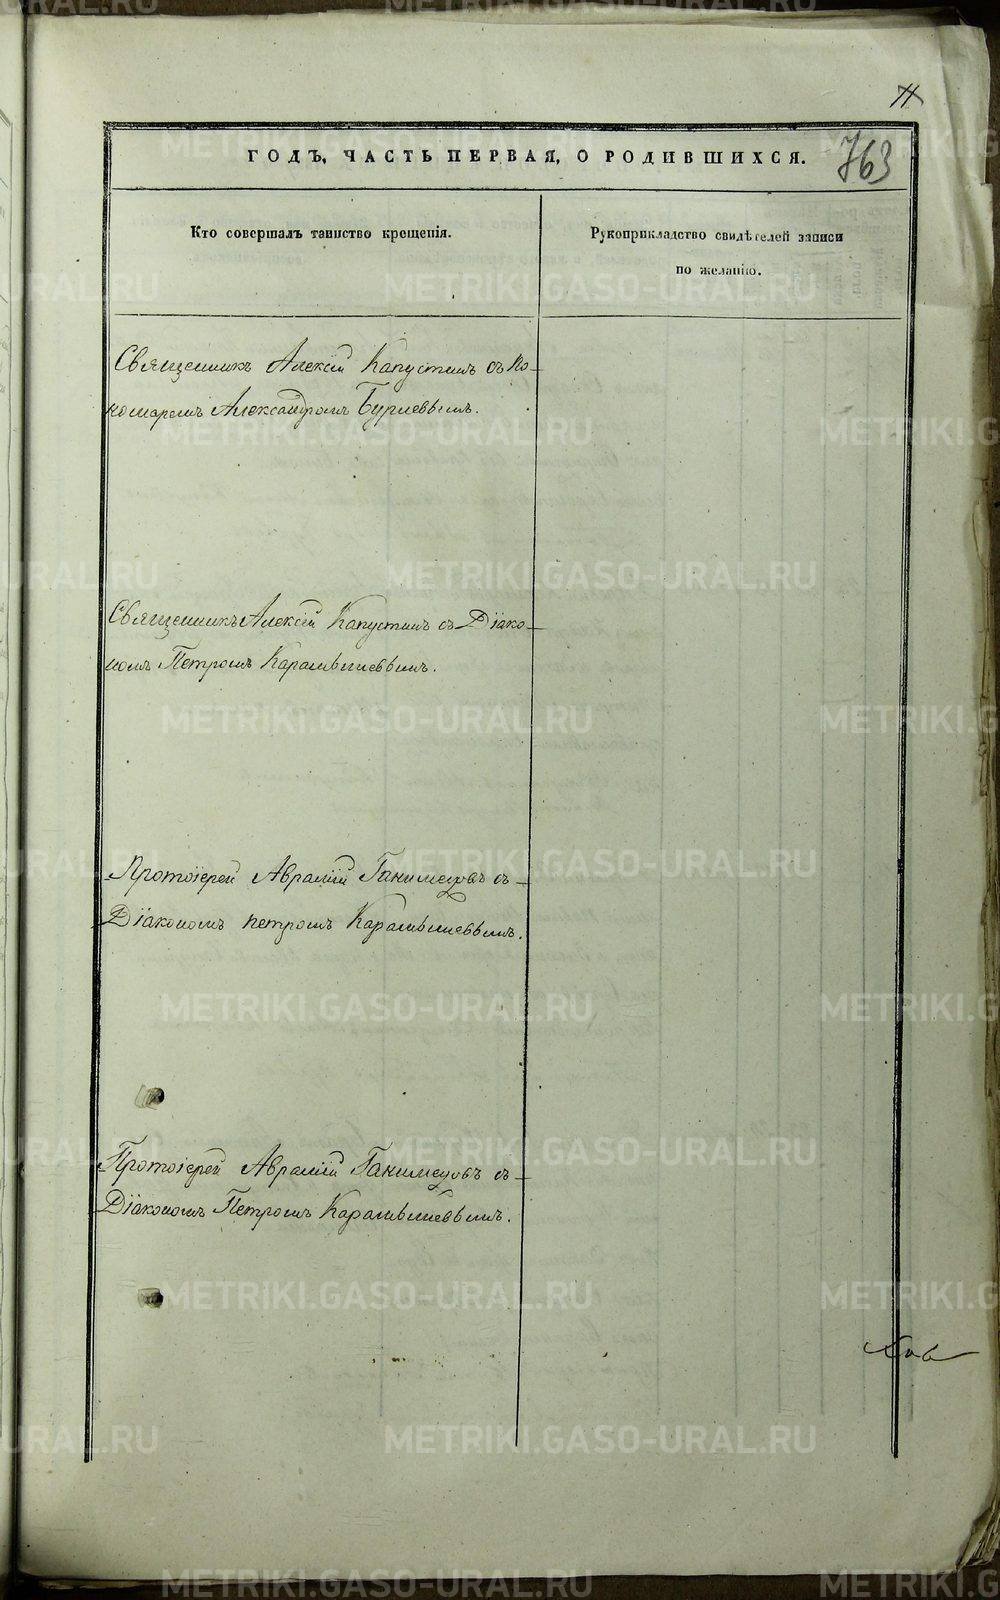 11
763
ГОДЪ, ЧАСТЬ ПЕРВАЯ, О РОДИВШИХСЯ.
Кто совершалъ таинство крещенія.
Рукоприкладство свидѣтелей записи
по желанію.
Священникъ Алексій Капустинъ съ По-
номаремъ Александромъ
Священникъ Алексій Капустинъ съ Діако-
номъ Петромъ Карамышевымъ.
Протоіерей Аврамій Ганимедовъ съ
Діакономъ Петромъ Карамышевымъ.
Протоіерей Аврамій Ганимедовъ съ
Діакономъ Петромъ Карамышевымъ.
METRIKI.GASO-URAL.RU